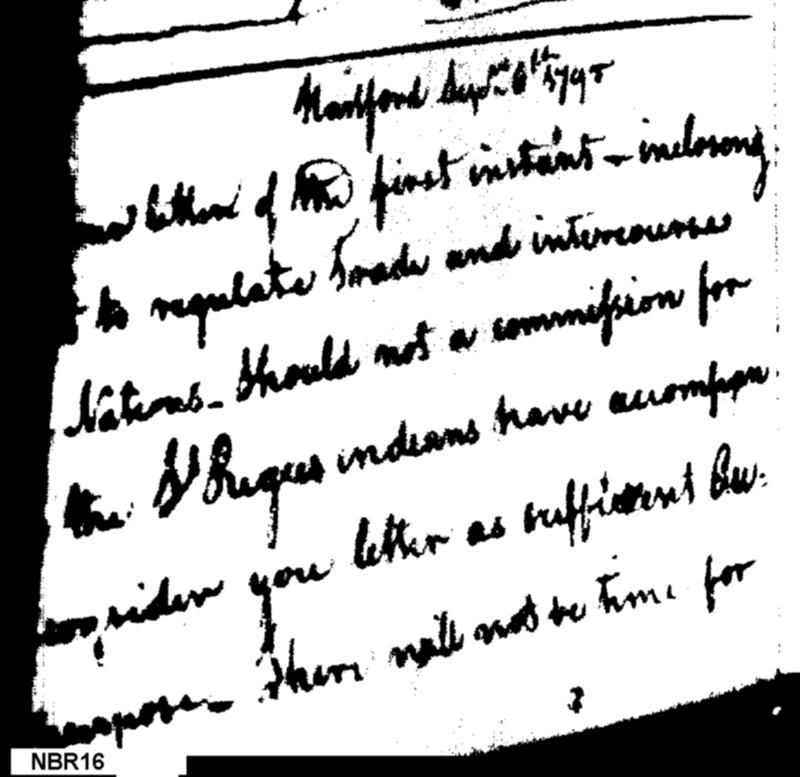 Hartford Sepr. 6th 1795
letter of the first instant - inclosing
to regulate Trade and intercourse
Nations - Should not a commission for
the St Regies indians have accompan
consider you letter as sufficient Au
purpose - There will not be time for
NBR16